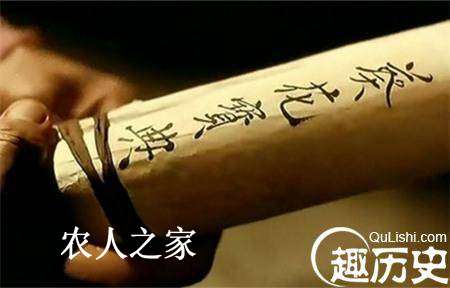 葵花寶典
农人之家
QuLishi.com
趣历史